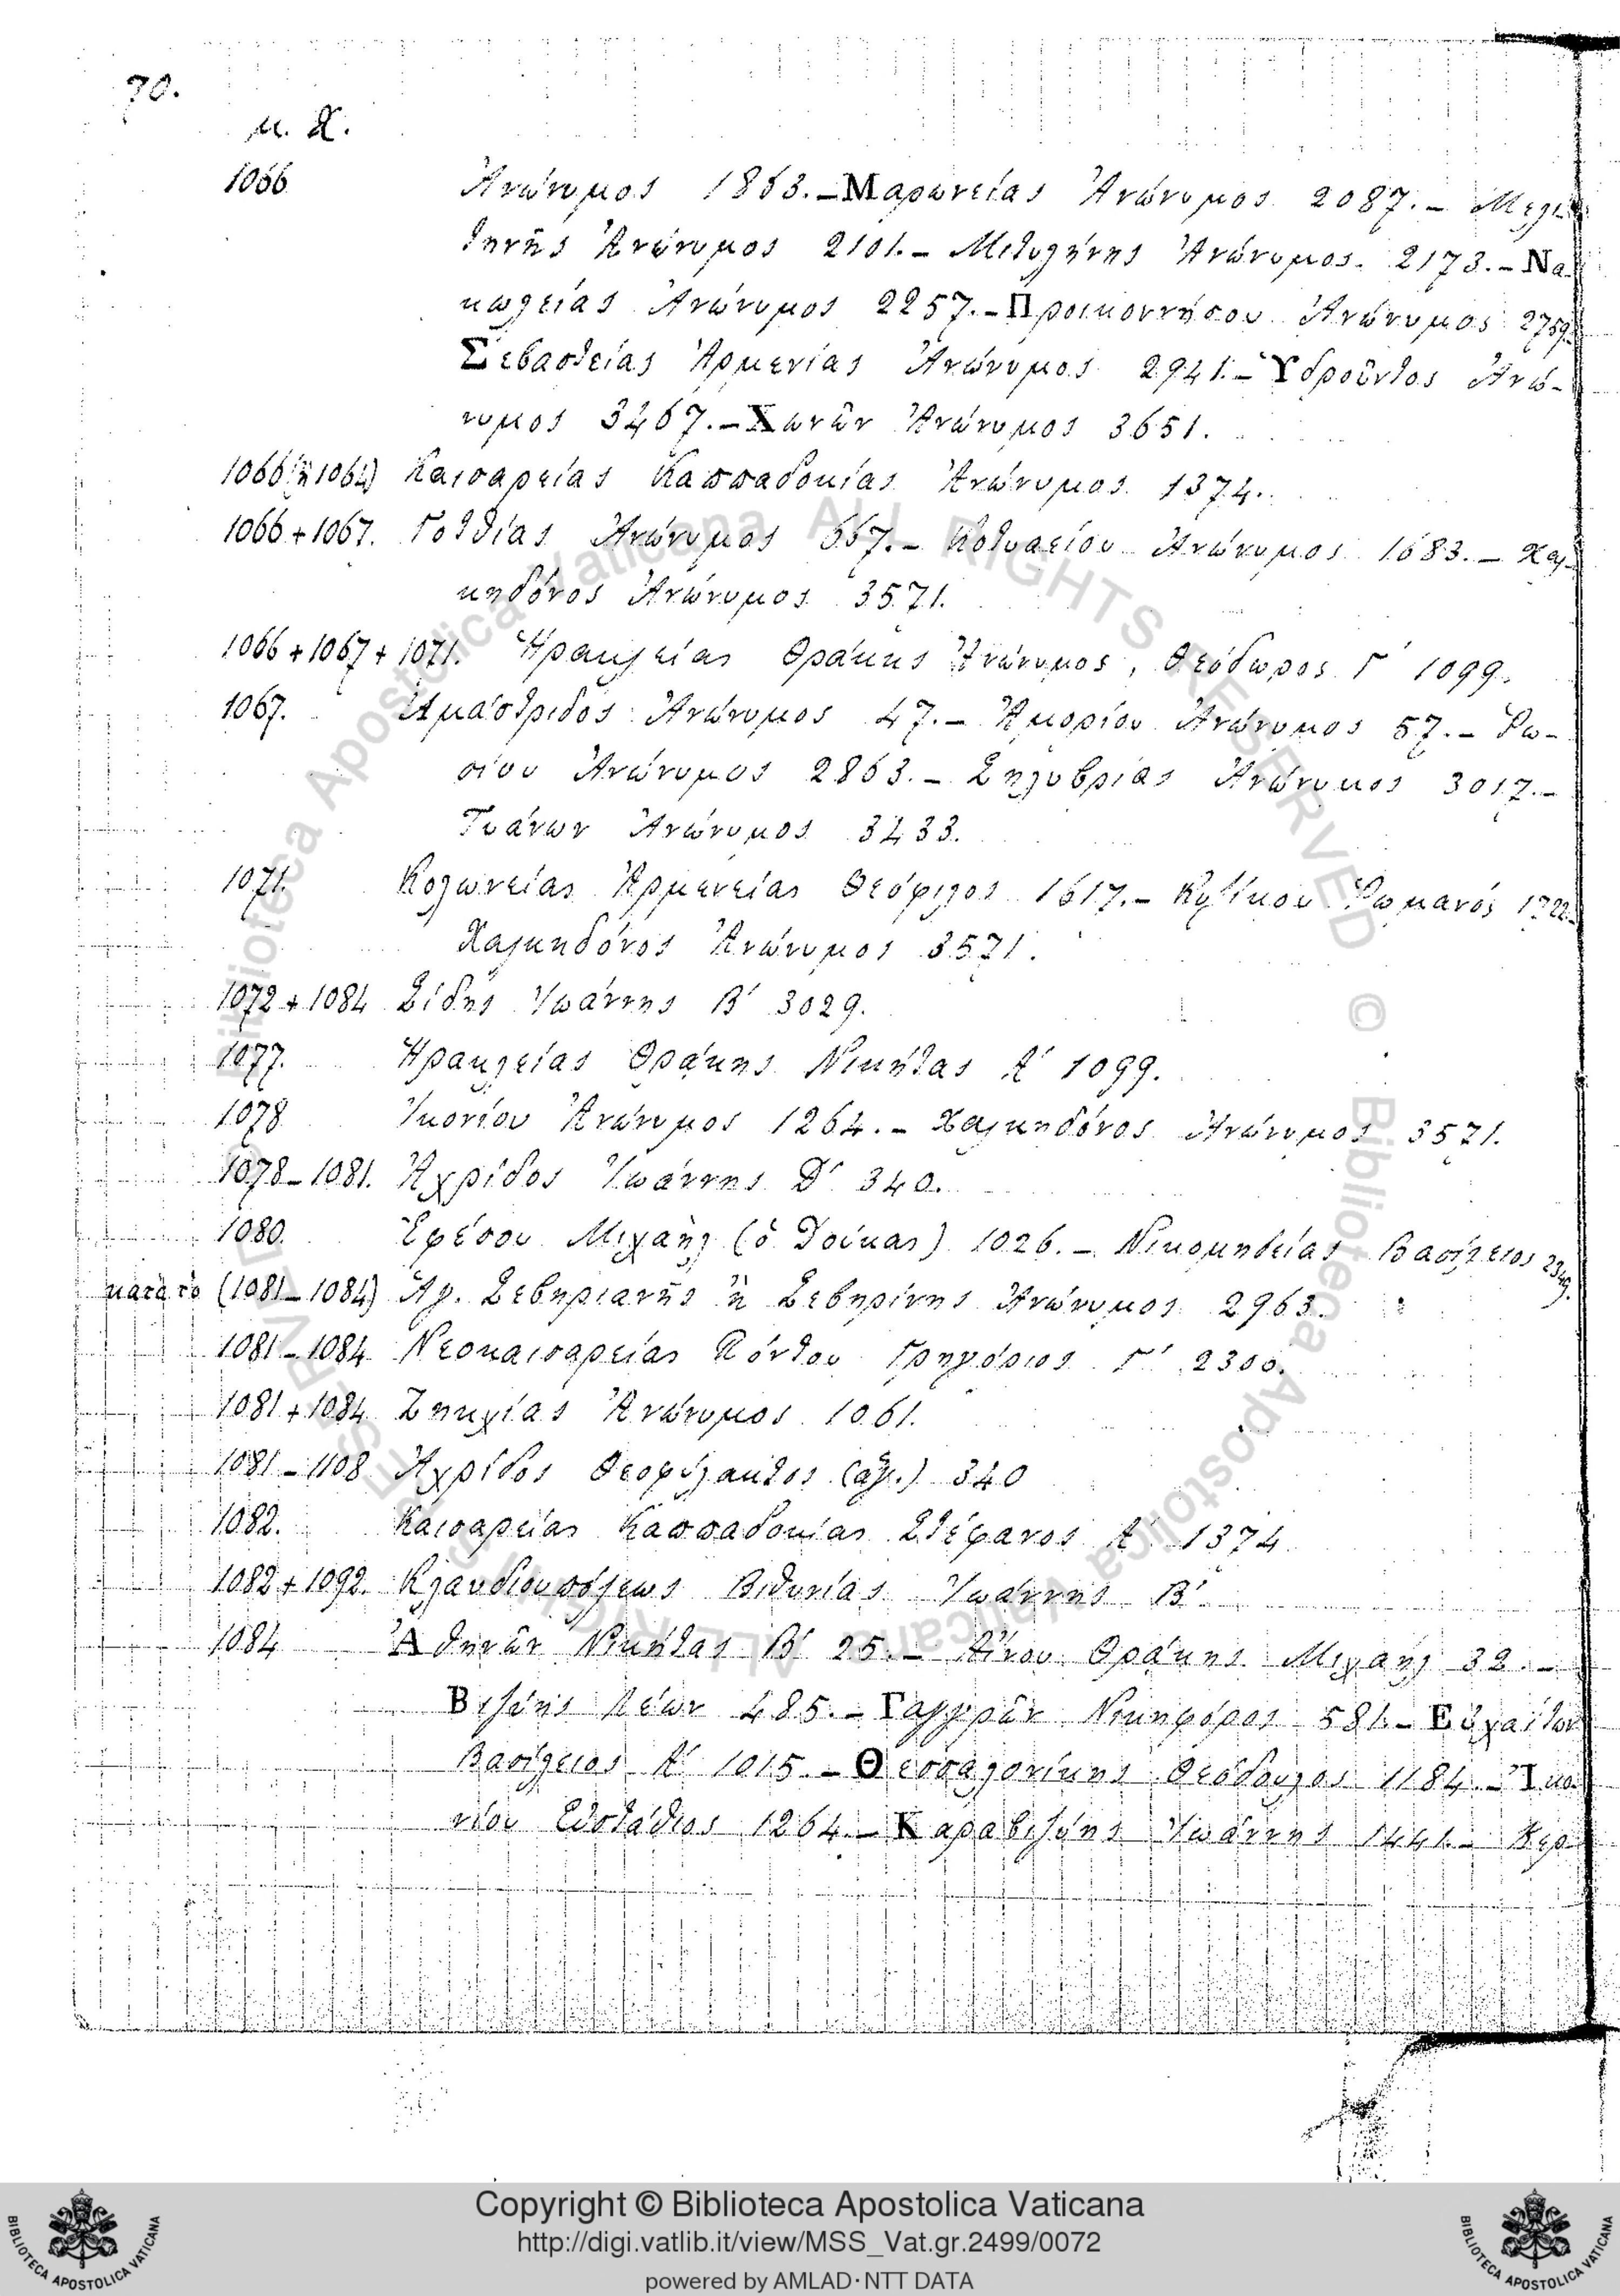 70.
μ. Χ.
1066 Ἀνώνυμος 1863.–Μαρωνείας Ἀνώνυμος 2087.– Μελι-
τηνῆς Ἀνώνυμος 2101.– Μιτυλήνης Ἀνώνυμος 2173.–Να-
κωλείας Ἀνώνυμος 2257.–Προικοννήσου Ἀνώνυμος 2759.
Σεβαστείας Ἀρμενίας Ἀνώνυμος 2941.–Ὑδροῦντος Ἀνώ-
νυμος 3467.–Χωνῶν Ἀνώνυμος 3651.
1066 (ἢ 1064) Καισαρείας Καππαδοκίας Ἀνώνυμος 1374.
1066+1067. Γοτθίας Ἀνώνυμος 667.– Κοτυαείου Ἀνώνυμος 1683.– Χαλ-
κηδόνος Ἀνώνυμος 3571.
1066+1067+1071. Ἡρακλείας Θράκης Ἀνώνυμος, Θεόδωρος Γ΄ 1099.
1067. Ἀμάστριδος Ἀνώνυμος 47.– Ἀμορίου Ἀνώνυμος 57.– Ῥω-
σίου Ἀνώνυμος 2863.– Σηλυβρίας Ἀνώνυμος 3017.–
Τυάνων Ἀνώνυμος 3433.
1071. Κολωνείας Ἀρμενείας Θεόφιλος 1617.– Κυζίκου Ῥωμανός 1722.
Χαλκηδόνος Ἀνώνυμος 3571.
1072+1084 Σίδης Ἰωάννης Β΄ 3029.
1077. Ἡρακλείας Θράκης Νικήτας Α΄ 1099.
1078 Ἰκονίου Ἀνώνυμος 1264.– Χαλκηδόνος Ἀνώνυμος 3571.
1078–1081. Ἀχρίδος Ἰωάννης Δ΄ 340.
1080. Ἐφέσου Μιχαὴλ (ὁ Δούκας) 1026.– Νικομηδείας Βασίλειος 2349.
κατὰ τὸ (1081–1084) Ἁγ. Σεβηριανῆς ἢ Σεβηρίνης Ἀνώνυμος 2963.
1081–1084 Νεοκαισαρείας Πόντου Γρηγόριος Γ΄ 2300.
1081+1084 Ζηκχίας Ἀνώνυμος 1061.
1081–1108 Ἀχρίδος Θεοφύλακτος (ἅγ.) 340
1082. Καισαρείας Καππαδοκίας Στέφανος Α΄ 1374
1082+1092. Κλαυδιουπόλεως Βιθυνίας Ἰωάννης Β΄.
1084 Ἀθηνῶν Νικήτας Β΄ 25.– Αἴνου Θράκης Μιχαὴλ 32.–
Βιζύης Λέων 485.–Γαγγρῶν Νικηφόρος 581.–Εὐχαΐτων
Βασίλειος Α΄ 1015.–Θεσσαλονίκης Θεόδουλος 1184.–Ἰκο-
νίου Εὐστάθιος 1264.–Καραβιζύης Ἰωάννης 1441.– Κερ-
Biblioteca Apostolica Vaticana ALL RIGHTS RESERVED ©
Biblioteca Apostolica Vaticana ALL RIGHTS RESERVED ©
Copyright © Biblioteca Apostolica Vaticana
http://digi.vatlib.it/view/MSS_Vat.gr.2499/0072
powered by AMLAD·NTT DATA
BIBLIOTECA APOSTOLICA VATICANA
BIBLIOTECA APOSTOLICA VATICANA